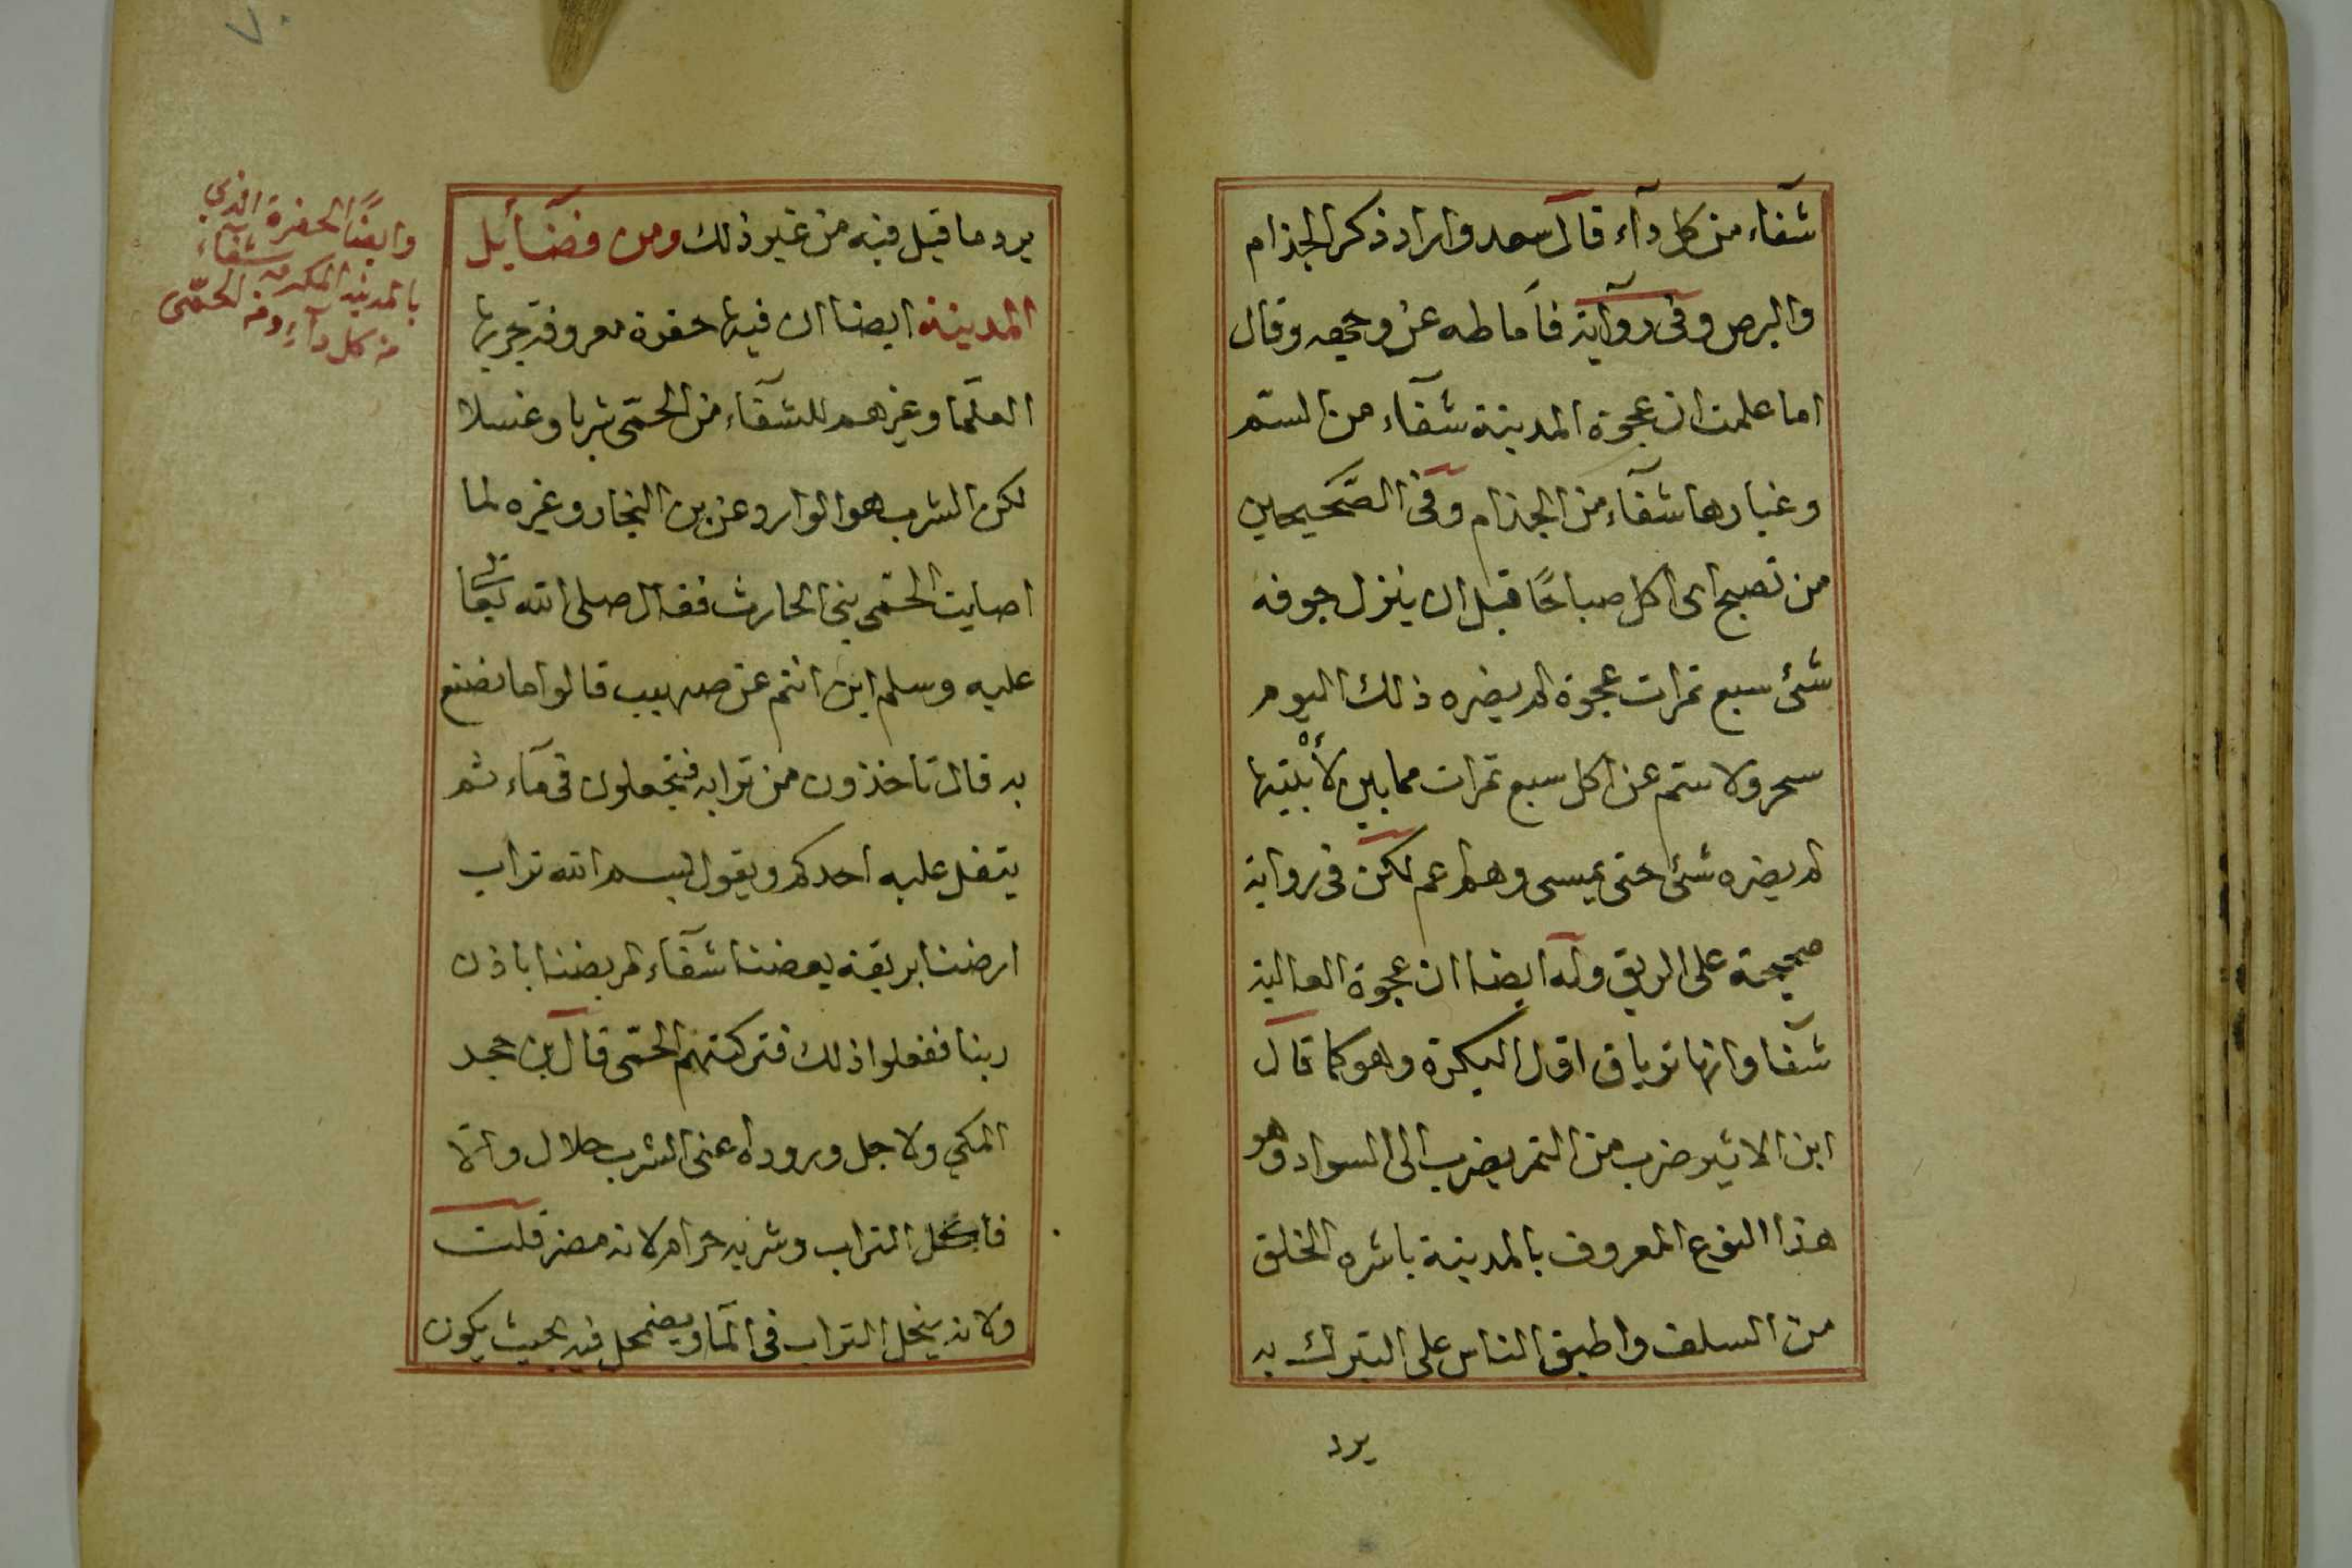 شفآء من كل دآء قال سعد واراد ذكر الجذام
والبرص وفى رواية فاماطه عن وجهه وقال
اما علمت ان عجوة المدينة شفآء من السم
وغبارها شفآء من الجذام وفى الصحيحين
من تصبح اى اكل صباحًا قبل ان ينزل جوفه
شئ سبع تمرات عجوة لم يضره ذلك اليوم
سحر ولا سم عن اكل سبع تمرات مما بين لأبتيها
لم يضره شئ حتى يمسى وهو اعم لكن فى رواية
صحيحة على الريق وله ايضا ان عجوة العالية
شفآ وانها ترياق اول البكرة وهو كما قال
ابن الاثير ضرب من التمر يضرب الى السواد وهو
هذا النوع المعروف بالمدينة باشره الخلق
من السلف واطبق الناس على التبرك به
يرد
يرد ما قيل فيه من غير ذلك ومن فضآيل
المدينة ايضا ان فيها حفرة معروفة جربها
العلمآ وغيرهم للشفآء من الحمّى شربا وغسلا
لكن الشرب هو الوارد عن بن النجار وغيره لما
اصابت الحمّى بنى الحارث فقال صلى الله
عليه وسلم اين انتم عن صهيب قالوا ما نصنع
به قال تاخذون من ترابه فتجعلون فى مآء ثم
يتفل عليه احدكم ويقول بسم الله تراب
ارضنا بريقة بعضنا شفآء لمريضنا باذن
ربنا ففعلوا ذلك فتركتهم الحمّى قال بن حجر
المكي ولاجل وروداه عنى الشرب حلال والّا
فاكل التراب وشربه حرام لانه مضر قلت
ولانه ينحل التراب فى المآ ويضمحل فيه بحيث يكون
وايضًا الحفرة الذي
بالمدينة المكرمه شفآء
من كل دآء ومن الحمّى